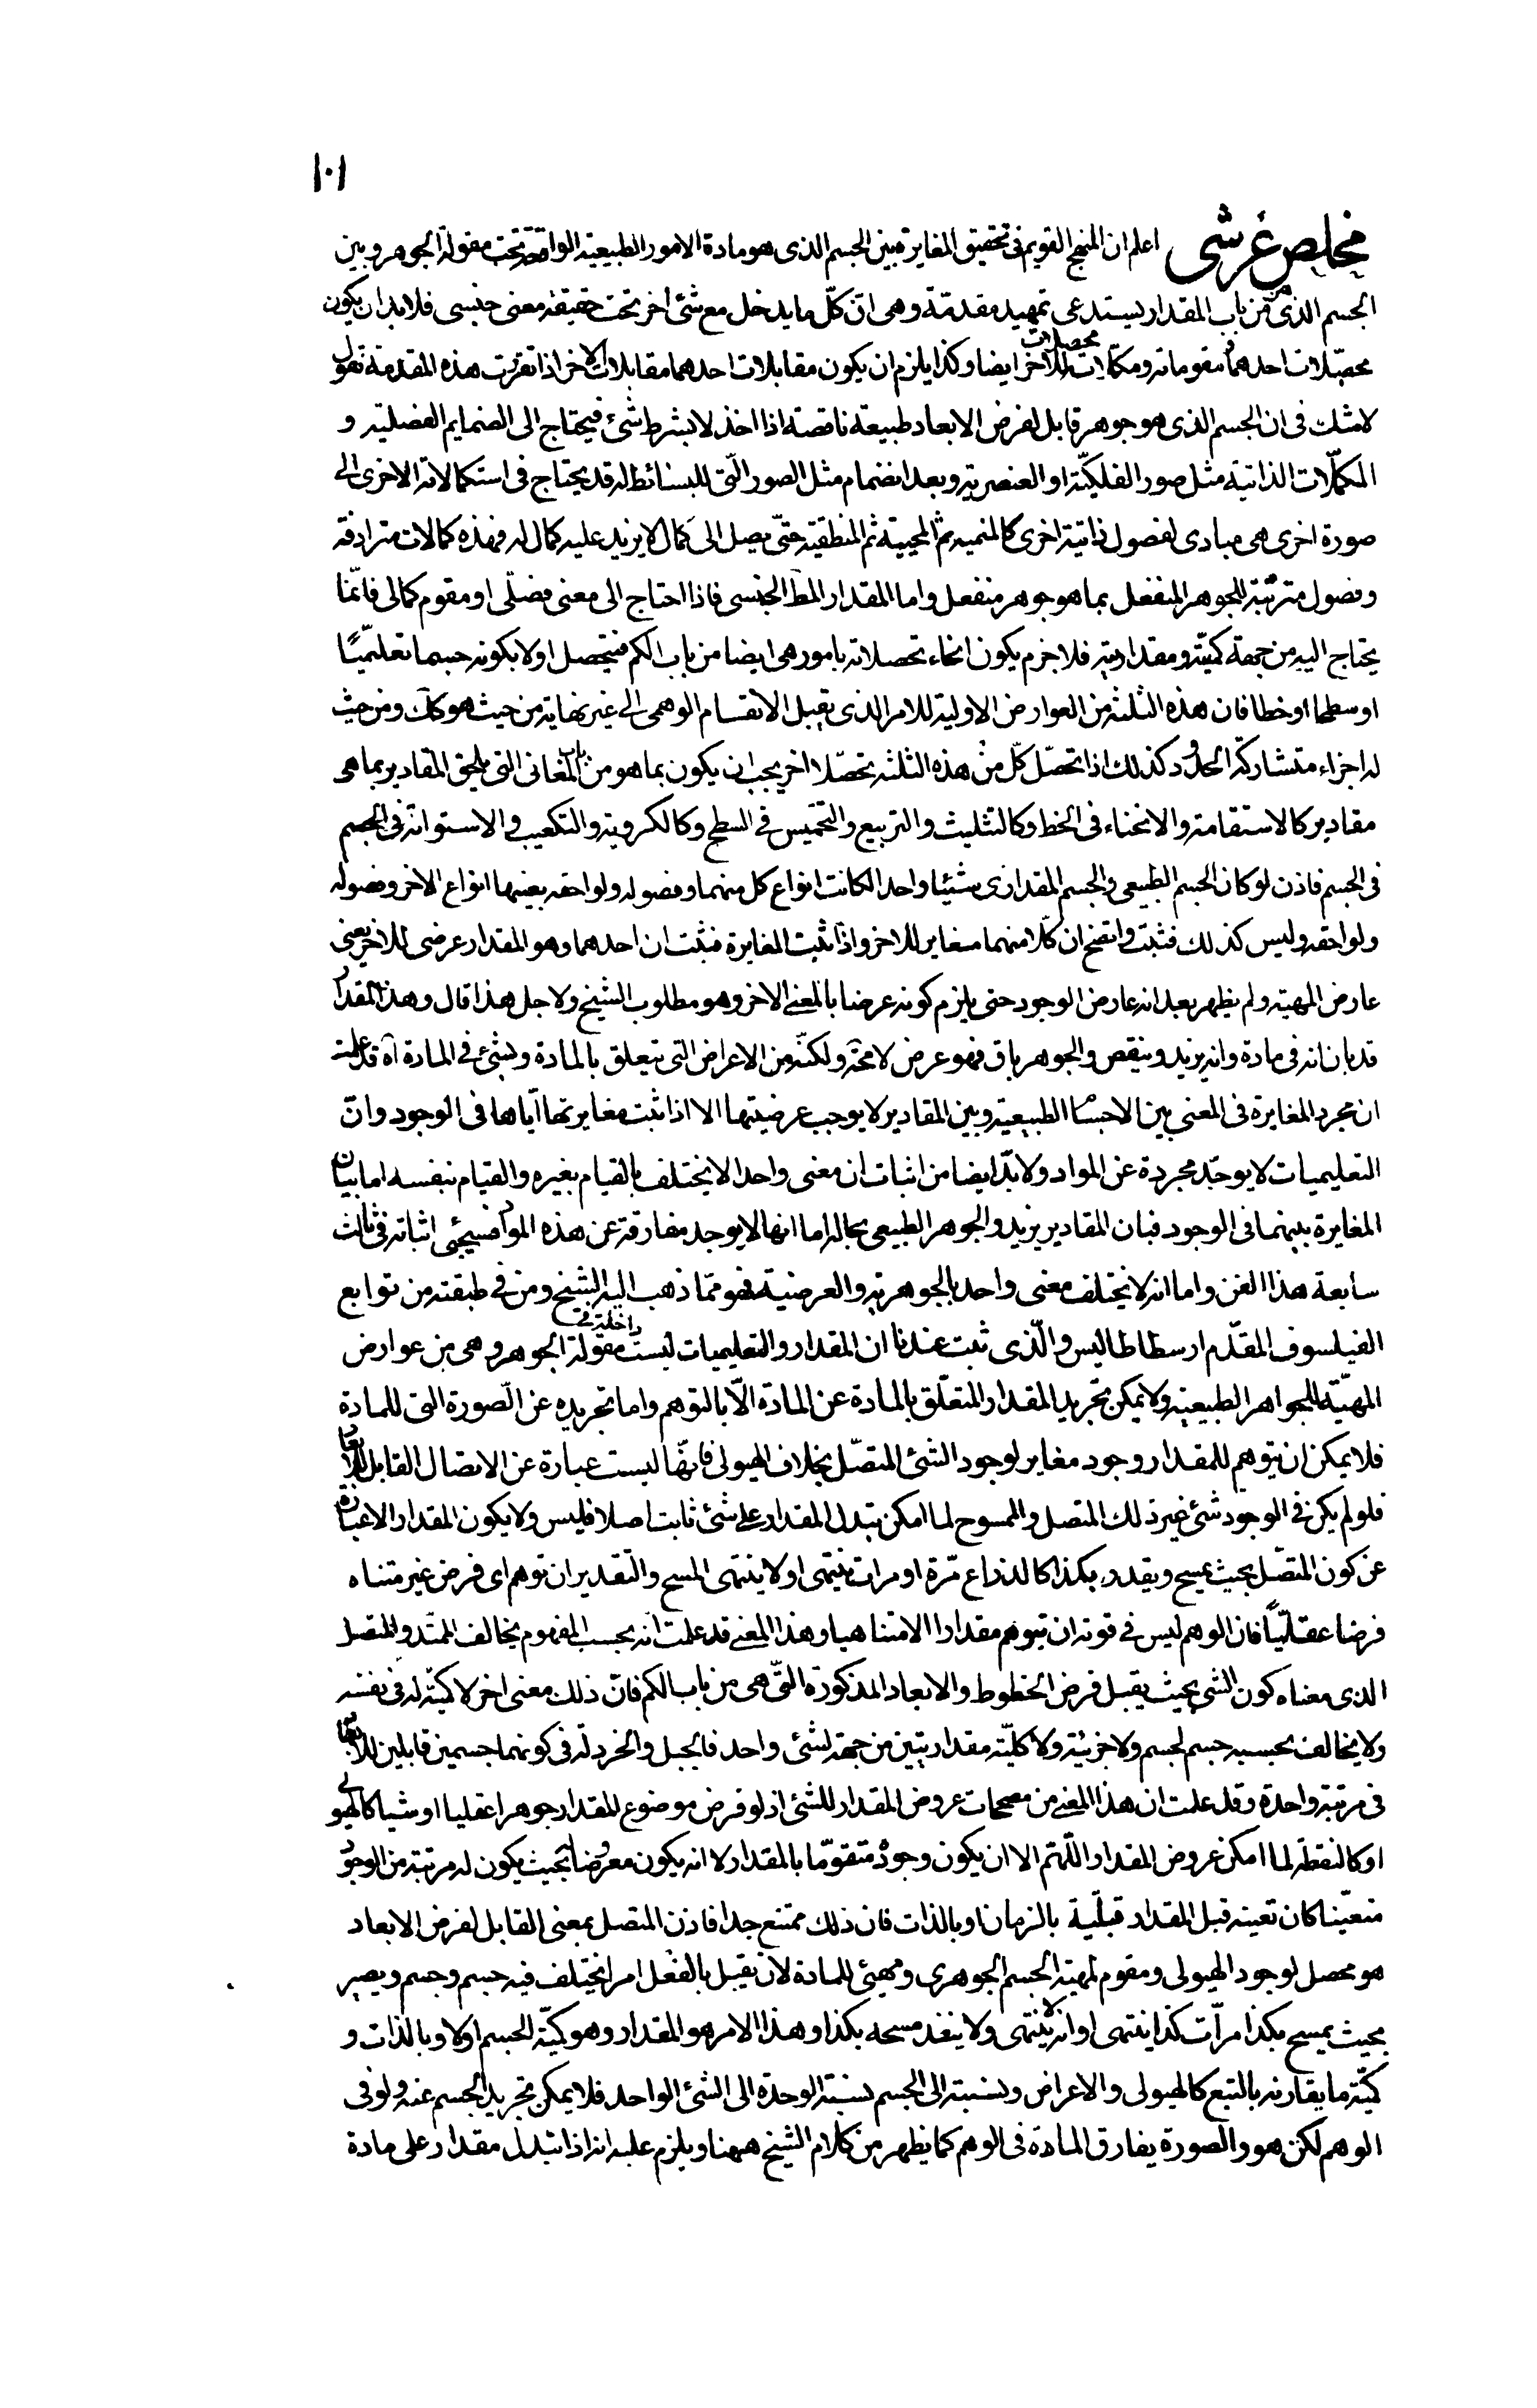 ١٠١
مخلص عرشى اعلم ان المنهج القويم فى تحقيق المغايرة بين الجسم الذى هو مادة الامور الطبيعية الواقعة تحت مقولة الجوهر وبين
الجسم الذى هو من باب المقدار يستدعى تمهيد مقدمّة وهى انّ كلّ ما يدخل مع شئ اخر تحت حقيقة معنى جنسى فلا بد ان يكون
محصّلات احدهما و مقوماته ومكمّلات محصلات للاخر ايضا وكذا يلزم ان يكون مقابلات احدهما مقابلات الاخر اذا تقررت هذه المقدمة نقول
لا شك فى ان الجسم الذى هو جوهر قابل لفرض الابعاد طبيعة ناقصة اذا اخذ لا بشرط شئ فيحتاج الى الضمايم الفصلية و
المكمّلات الذاتية مثل صور الفلكيّة او العنصرية وبعد انضمام مثل الصور الّتى للبسائط له قد يحتاج فى استكمالاته الاخرى الى
صورة اخرى هى مبادى لفصول ذاتية اخرى كالمنمية ثم المحيية ثم المنطقية حتّى يصل الى كمال لا يزيد عليه كمال له فهذه كمالات مترادفة
وفصول مترتبة للجوهر المنفعل بما هو جوهر منفعل واما المقدار المط الجنسى فاذا احتاج الى معنى فصلّى او مقوم كمالى فانّما
يحتاج اليه من جهة كميّته ومقداريته فلا جرم يكون انحاء تحصلاته بامور هى ايضا من باب الكم فيتحصل اولا بكونه جسما تعليميّا
او سطحا او خطا فان هذه الثلثة من العوارض الاولية للامر الذى يقبل الانقسام الوهمى الى غير نهاية من حيث هو كك ومن حيث
له اجزاء متشاركة الحدود وكذلك اذا تحصّل كلّ من هذه الثلثة تحصّلا اخر يجب ان يكون بما هو من باب المعانى التى يلحق المقادير بما هى
مقادير كالاستقامة والانحناء فى الخط وكالتثليث والتربيع والتخميس فى السطح وكالكروية والتكعيب والاستوانة فى الجسم
فى الجسم فاذن لو كان الجسم الطبيعى والجسم المقدارى شيئا واحدا لكانت انواع كل منهما وفصوله ولواحقه بعينها انواع الاخر وفصوله
ولواحقه وليس كذلك فثبت واتضح ان كلّا منهما مغاير للاخر واذا ثبت المغايرة فثبت ان احدهما وهو المقدار عرضى للاخر بمعنى
عارض المهية ولم يظهر بعد انه عارض الوجود حتى يلزم كونه عرضا بالمعنى الاخر وهو مطلوب الشيخ ولاجل هذا قال وهذا المقدار
قد بان انه فى مادة وانه يزيد وينقص والجوهر باق فهو عرض لا محة ولكنّه من الاعراض التى يتعلق بالمادة وبشئ فى المادة آه قد علمت
ان مجرد المغايرة فى المعنى بين الاجسام الطبيعية وبين المقادير لا يوجب عرضيتها الا اذا ثبت مغايرتها ايّاها فى الوجود وانّ
التعليميات لا يوجد مجردة عن المواد ولا بدّ ايضا من اثبات ان معنى واحدا لا يختلف بالقيام بغيره والقيام بنفسه اما بيان
المغايرة بينهما فى الوجود فبان المقادير يزيد والجوهر الطبيعى بحاله اما انها لا يوجد مفارقة عن هذه المواد فسيجئ اثباته فى ثالث
سابعة هذا الفن واما انه لا يختلف معنى واحد بالجوهرية والعرضية فهو ممّا ذهب اليه الشيخ ومن فى طبقته من توابع
الفيلسوف المقدّم ارسطاطاليس والّذى ثبت عندنا ان المقدار والتعليميات ليست داخلة فى مقولة الجوهر وهى من عوارض
المهيّة للجواهر الطبيعية ولا يمكن تجريد المقدار المتعلّق بالمادة عن المادّة الّا بالتوهم واما تجريده عن الصّورة التى للمادة
فلا يمكن ان يتوهم للمقدار وجود مغاير لوجود الشئ المتصّل بخلاف الهيولى فانّها ليست عبارة عن الاتصال القابل للابعاد
فلو لم يكن فى الوجود شئ غير ذلك المتصل والممسوح لما امكن تبدل المقدار على شئ ثابت اصلا فليس ولا يكون المقدار الا عبارة
عن كون المتصّل بحيث يمسح ويقدر بكذا كالذراع مّرة او مرات ينتهى او لا ينتهى المسح والتّقدير ان توهم اى فرض غير متناه
فرضا عقليّا فان الوهم ليس فى قوته ان يتوهم مقدارا لا متناهيا وهذا المعنى قد علمت انه بحسب المفهوم يخالف الممتد والمتصل
الذى معناه كون الشئ بحيث يقبل فرض الخطوط والابعاد المذكورة التى هى من باب الكم فانّ ذلك معنى اخر لا كميّة له فى نفسه
ولا يخالف بحسبه جسم لجسم ولا جزئية ولا كليّة مقداريتين من جهة لشئ واحد فالجبل والخردلة فى كونهما جسمين قابلين للابعاد
فى مرتبة واحدة وقد علمت ان هذا المعنى من مصححات عروض المقدار للشئ اذ لو فرض موضوع للمقدار جوهرا عقليا او شيا كالهيولى
او كالنقطة لما امكن عروض المقدار اللّهم الا ان يكون وجوده متقوّما بالمقدار لا انه يكون معروضا بحيث يكون له مرتبة من الوجود
متعيّنا كان تعينه قبل المقدار قبليّة بالزمان او بالذات فان ذلك ممتنع جدا فاذن المتصل بمعنى القابل لفرض الابعاد
هو محصل لوجود الهيولى ومقوم لمهية الجسم الجوهرى ومهيئ للمادة لان يقبل بالفعل امرا يختلف فيه جسم وجسم ويصير
بحيث يمسح بكذا مرآت كذا ينتهى او انه لا ينتهى ولا ينفد مسحه بكذا وهذا الامر هو المقدار وهو كميّة الجسم اولا وبالذات و
كميّة ما يقارنه بالتبع كالهيولى والاعراض ونسبته الى الجسم نسبة الوحدة الى الشئ الواحد فلا يمكن تجريد الجسم عنه ولو فى
الوهم لكن هو والصورة يفارق المادة فى الوهم كما يظهر من كلام الشيخ ههنا ويلزم عليه انه اذا تبدل مقدار على مادة